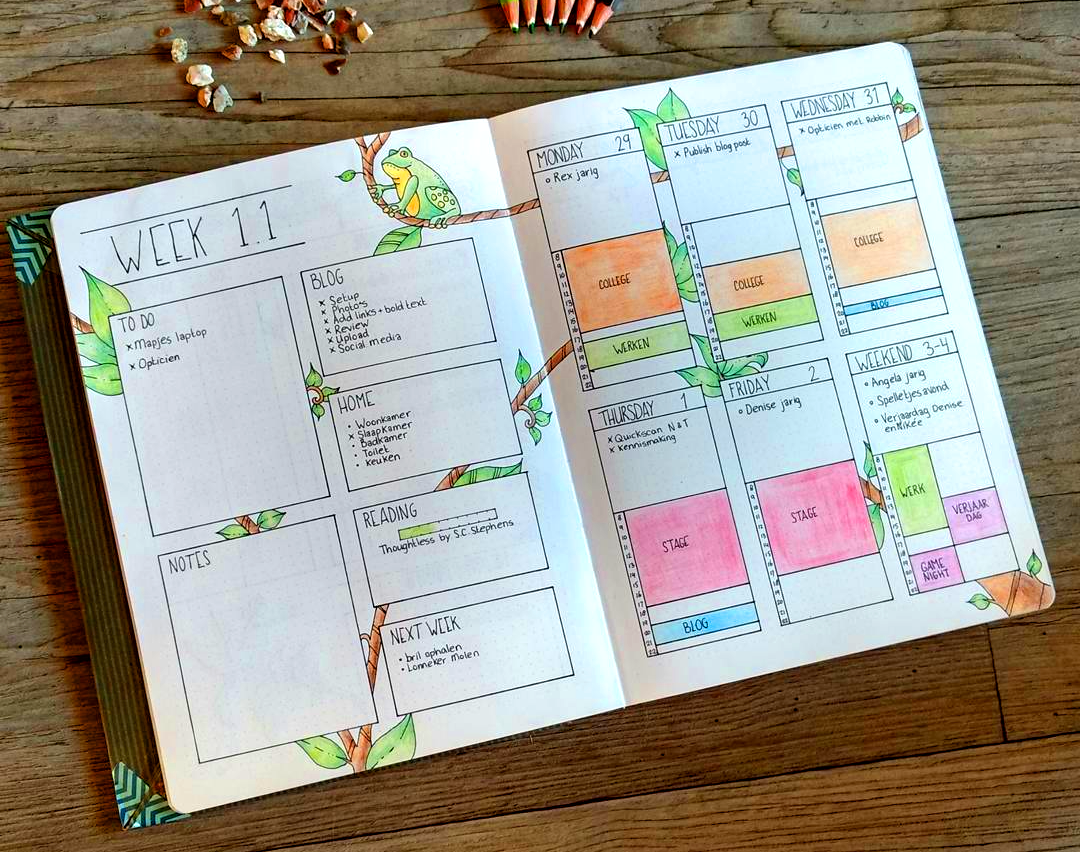 WEEK 1.1
TO DO
x Mapjes laptop
x Opticien
NOTES
BLOG
x Setup
x Photo's
x Add links + bold text
x Review
x Upload
x Social media
HOME
• Woonkamer
x Slaapkamer
• Badkamer
• Toilet
• Keuken
READING
Thoughtless by S.C. Stephens
NEXT WEEK
• bril ophalen
• Lonneker Molen
MONDAY 29
o Rex jarig
COLLEGE
WERKEN
TUESDAY 30
x Publish blogpost
COLLEGE
WERKEN
WEDNESDAY 31
x Opticien met Robbin
COLLEGE
BLOG
THURSDAY 1
x Quickscan N&T
x Kennismaking
STAGE
BLOG
FRIDAY 2
o Denise jarig
STAGE
WEEKEND 3-4
o Angela jarig
o Spelletjesavond
o Verjaardag Denise
en Mikée
WERK
VERJAAR
DAG
GAME
NIGHT